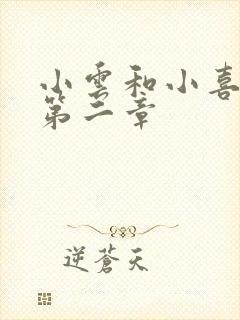 小雲和小喜
第二章
逆蒼天